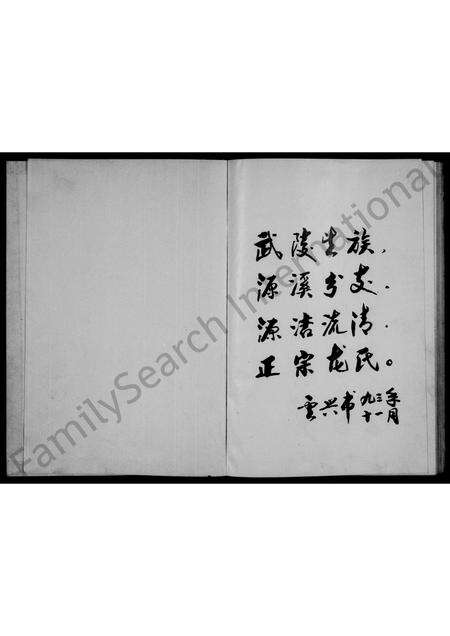 武陵生族，
源溪分支。
源洁流清，
正宗龙氏。
云兴书 九三年十一月
FamilySearch International